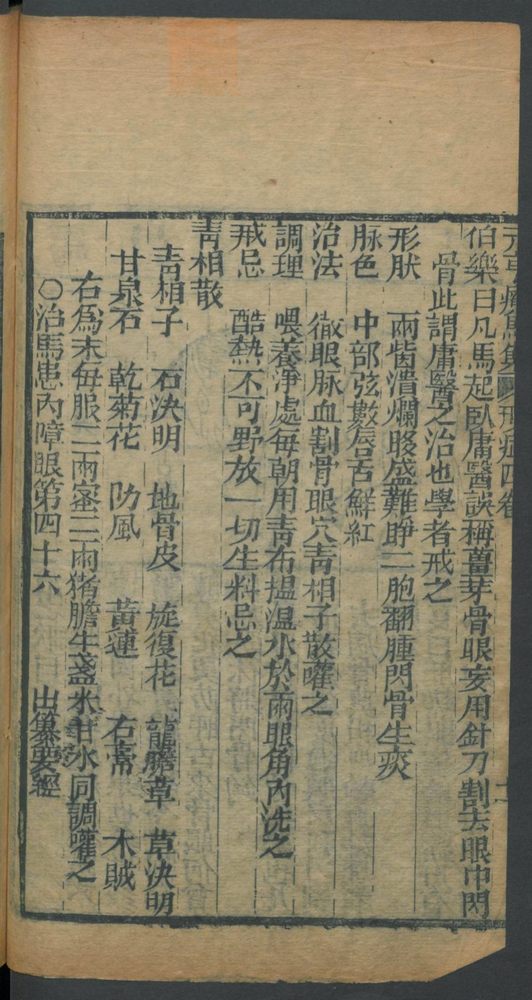 元亨療馬集 形症四卷
伯樂曰凡馬起臥庸醫誤稱薑芽骨眼妄用針刀割去眼中閃
骨此謂庸醫之治也學者戒之
形狀　兩眥潰爛眵盛難睜二胞翻腫閃骨生瘀
脉色　中部弦數唇舌鮮紅
治法　徹眼脉血割骨眼穴青相子散嚾之
調理　喂養淨處每朝用青布搵温水於兩眼角內洗之
戒忌　酷熱不可野放一切生料忌之
青相散
青相子　石決明　地骨皮　旋復花　龍膽草　草決明
甘泉石　乾菊花　防風　黃蓮　石膏　木賊
右為末每服二兩蜜三兩猪膽半盞米泔水同調嚾之
○治馬患內障眼第四十六　出纂要經